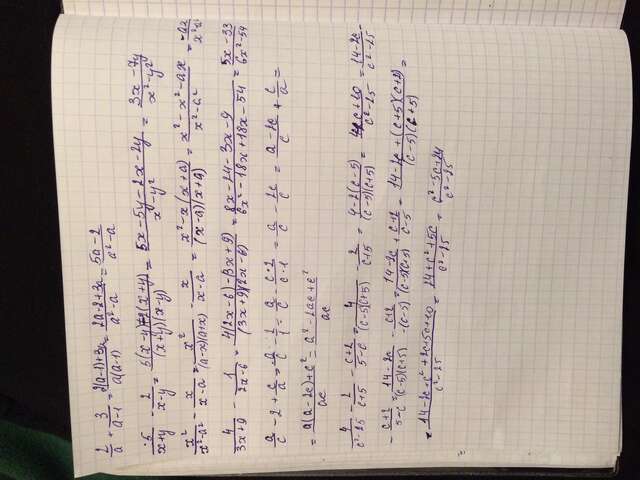 2/a + 3/a-1 = 2(a-1)+3a/a(a-1) = 2a-2+3a/a²-a = 5a-2/a²-a
5/x+y - 2/x-y = 5(x-y)-2(x+y)/(x+y)(x-y) = 5x-5y-2x-2y/x²-y² = 3x-7y/x²-y²
x²/x²-a² - x/x-a = x²/(a-x)(a+x) - x/x-a = x²-x(x+a)/(x-a)(x+a) = x²-x²-ax/x²-a² = -ax/x²-a²
4/3x+9 - 1/2x-6 = 4(2x-6)-(3x+9)/(3x+9)(2x-6) = 8x-24-3x-9/6x²-18x+18x-54 = 5x-33/6x²-54
a/c - 2 + c/a = a/c - 2/1 = a/c - c·2/c·1 = a/c - 2c/c = a-2c/c + c/a =
= a(a-2c)+c²/ac = a²-2ac+c²/ac
4/c²-25 - 2/c+5 - c+2/5-c = 4/(c-5)(c+5) - 2/c+5 = 4-2(c-5)/(c-5)(c+5) = c+10/c²-25 = 14-2c/c²-25
- c+2/5-c = 14-2c/(c-5)(c+5) - c+2/-(c-5) = 14-2c/(c-5)(c+5) + c+2/c-5 = 14-2c+(c+5)(c+2)/(c-5)(c+5) =
= 14-2c+c²+2c+5c+10/c²-25 = 24+c²+5c/c²-25 = c²-5c+24/c²-25
=